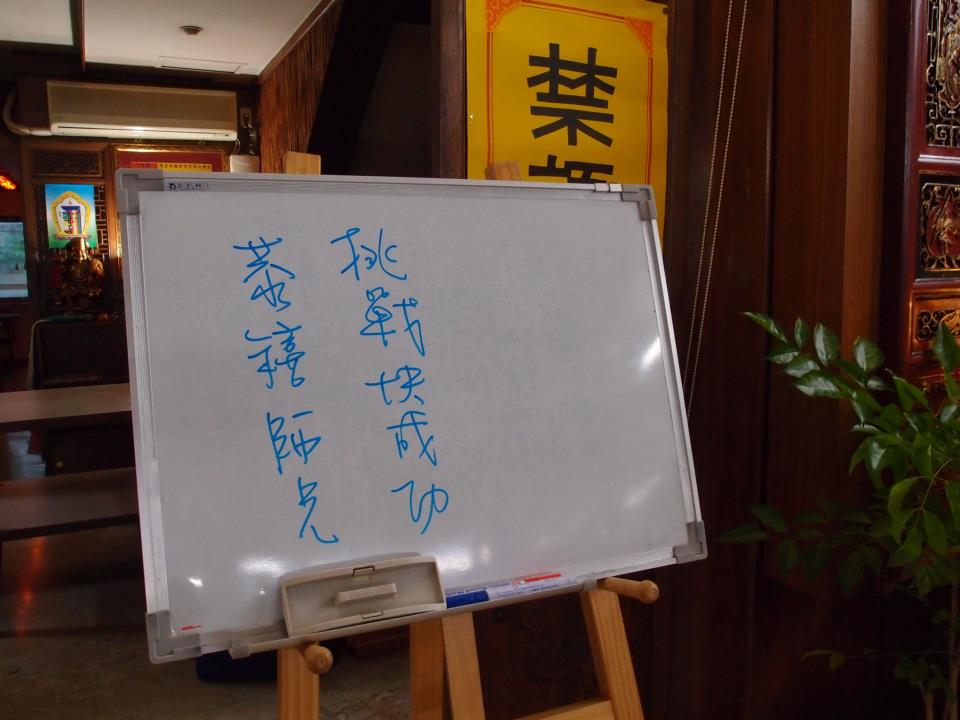 挑戰块成功
恭禧師兄
禁